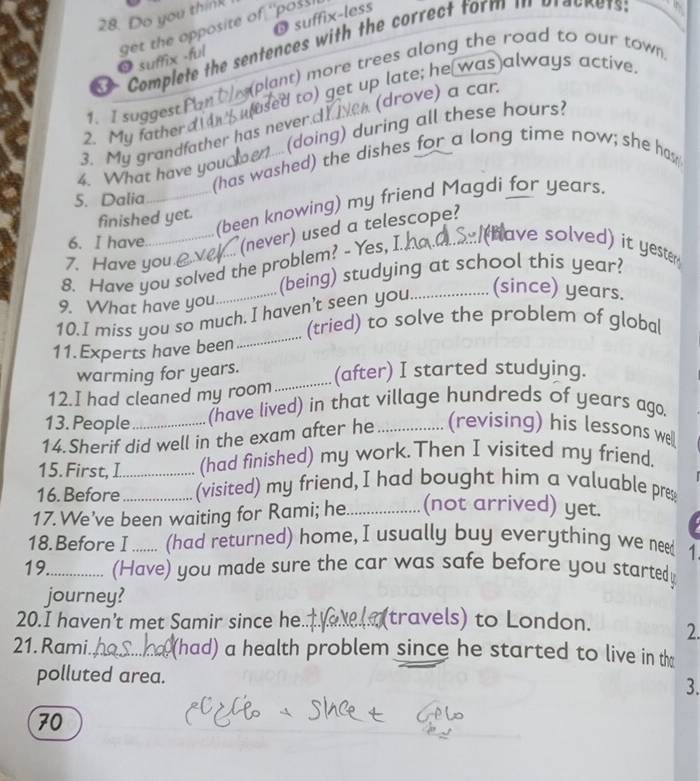 28. Do you think
get the opposite of "possi
a suffix -ful b suffix-less
3 Complete the sentences with the correct form in brackets:
1. I suggest planting (plant) more trees along the road to our town.
2. My father didn't (used to) get up late; he was always active.
3. My grandfather has never driven (drove) a car.
4. What have you doen (doing) during all these hours?
5. Dalia.............. (has washed) the dishes for a long time now; she hasn
finished yet.
6. I have.............. (been knowing) my friend Magdi for years.
7. Have you ever (never) used a telescope?
8. Have you solved the problem? - Yes, I had (have solved) it yester
9. What have you.............. (being) studying at school this year?
10.I miss you so much. I haven't seen you.............. (since) years.
11.Experts have been .............. (tried) to solve the problem of global
warming for years.
12.I had cleaned my room .............. (after) I started studying.
13.People.............. (have lived) in that village hundreds of years ago.
14.Sherif did well in the exam after he.............. (revising) his lessons well
15.First, I.............. (had finished) my work. Then I visited my friend.
16.Before.............. (visited) my friend, I had bought him a valuable prese
17.We've been waiting for Rami; he.............. (not arrived) yet.
18.Before I ....... (had returned) home, I usually buy everything we need
19.............. (Have) you made sure the car was safe before you started y
journey?
20.I haven't met Samir since he traveled (travels) to London.
21.Rami has had (had) a health problem since he started to live in tha
polluted area.
since +
70
1.
2.
3.